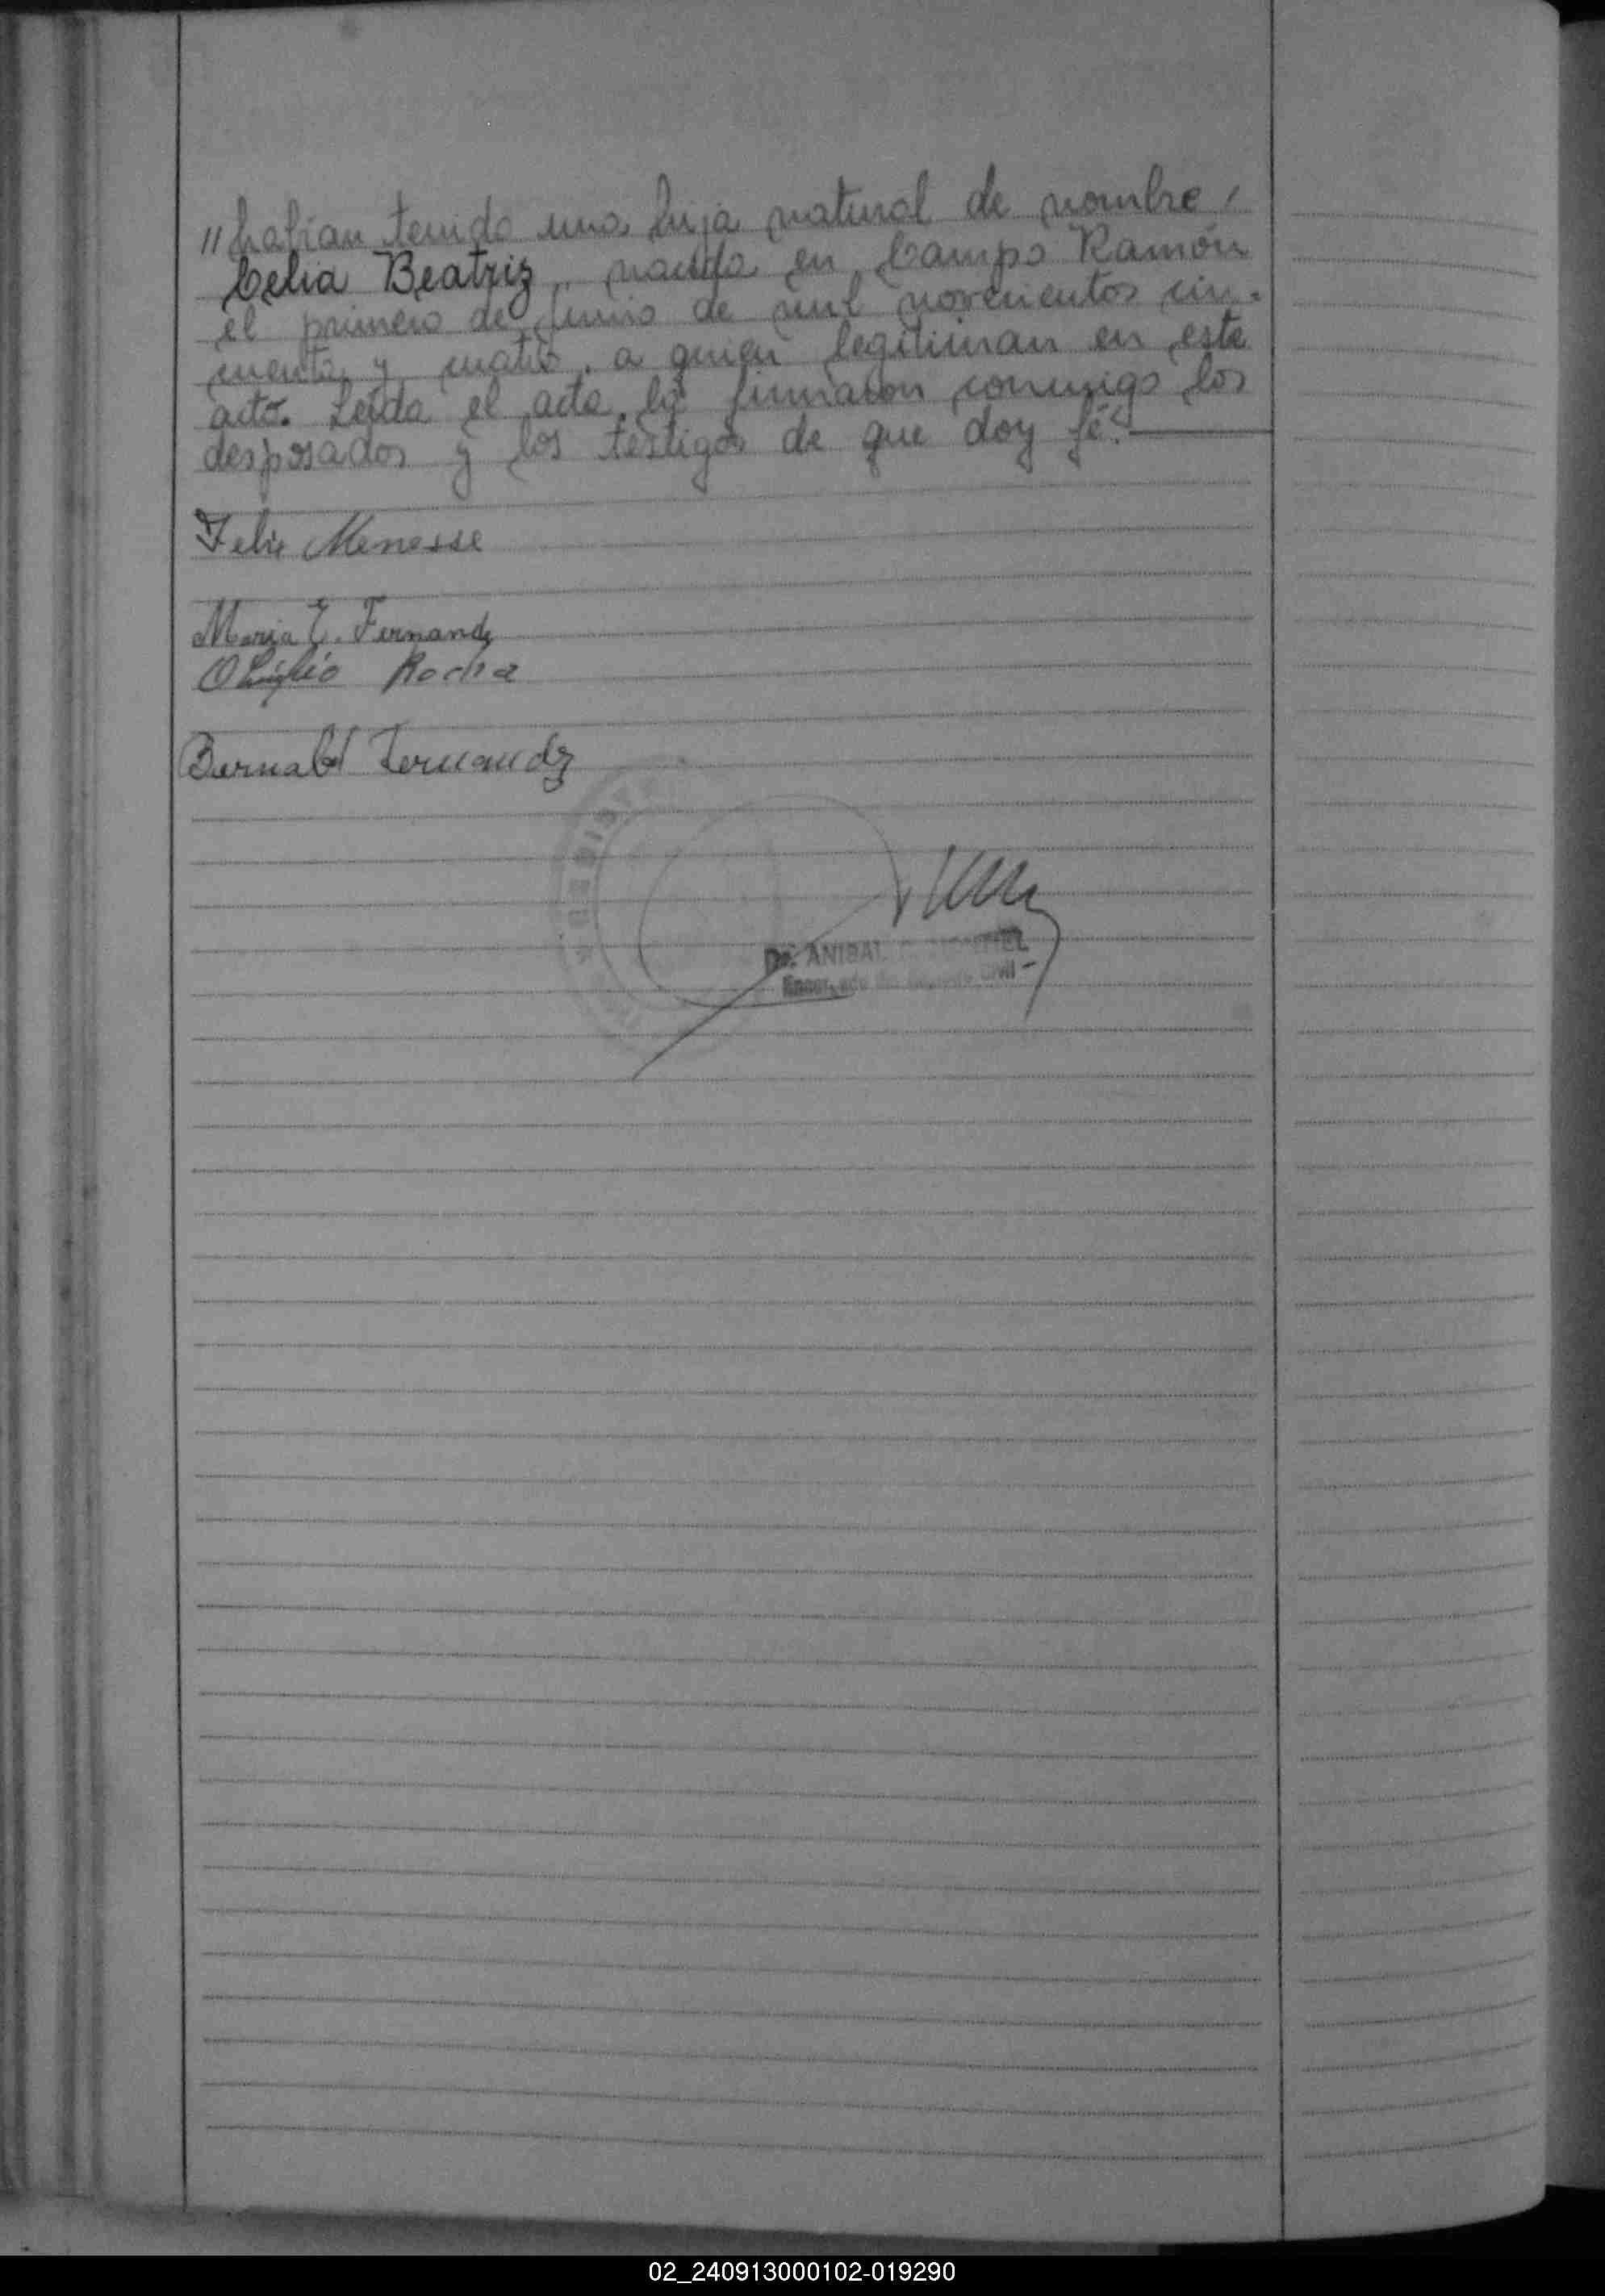 "habían tenido una hija natural de nombre,
Celia Beatriz, nacida en Campo Ramón
el primero de Junio de mil novecientos cin-
cuenta y cuatro, a quien legitiman en este
acto. Leída el acta la firmaron conmigo los
desposados y los testigos de que doy fé.
Felix Menesse
Maria E. Fernandz
Rocha
Bernabé Fernandz
Dr. ANIBAL
Civil
02_240913000102-019290